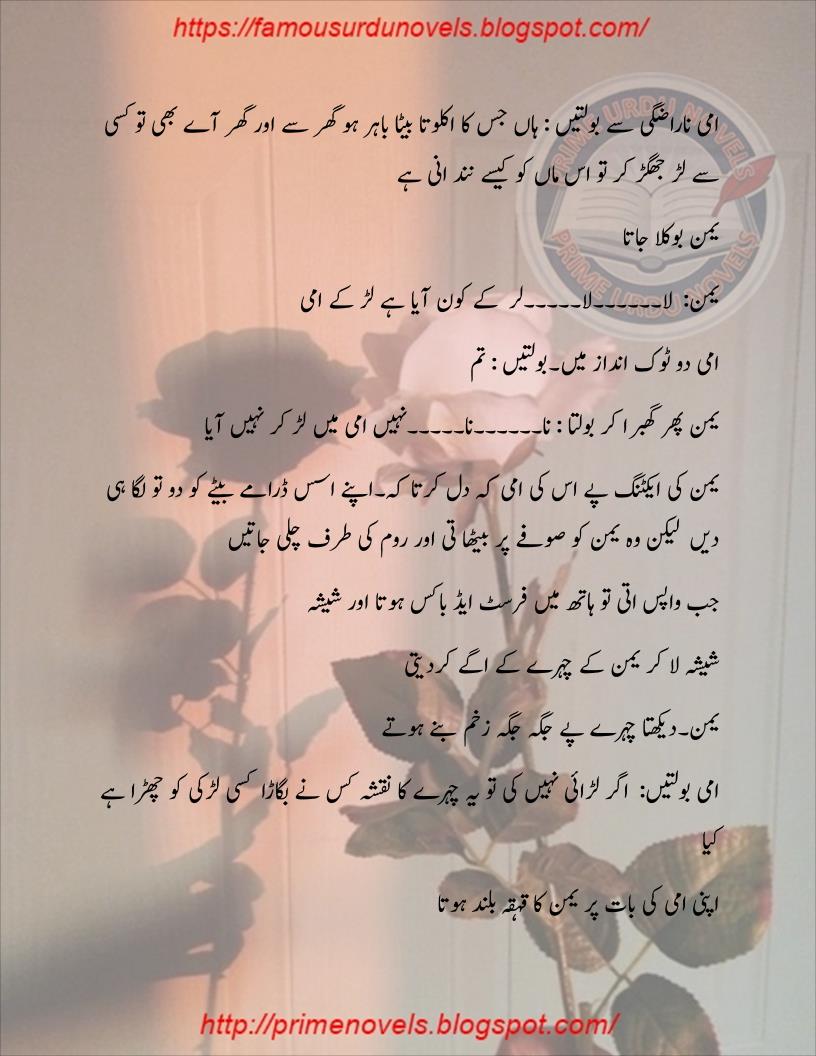 https://famousurdunovels.blogspot.com/
PRIME URDU NOVELS
PRIME URDU NOVELS
امی ناراضگی سے بولتیں : ہاں جس کا اکلوتا بیٹا باہر ہو گھر سے اور گھر آے بھی تو کسی
سے لڑ جھگڑ کر تو اس ماں کو کیسے نند انی ہے
یمن بوکلا جاتا
یمن: لا۔۔۔۔۔۔لا۔۔۔۔۔لر کے کون آیا ہے لڑ کے امی
امی دو ٹوک انداز میں۔بولتیں : تم
یمن پھر گھبرا کر بولتا : نا۔۔۔۔۔۔نا۔۔۔۔۔نہیں امی میں لڑ کر نہیں آیا
یمن کی ایکٹنگ پے اس کی امی کہ دل کرتا کہ۔اپنے اسس ڈرامے بیٹے کو دو تو لگا ہی
دیں لیکن وہ یمن کو صوفے پر بیٹھاتی اور روم کی طرف چلی جاتیں
جب واپس اتی تو ہاتھ میں فرسٹ ایڈ باکس ہوتا اور شیشہ
شیشہ لا کر یمن کے چہرے کے اگے کردیتی
یمن۔دیکھتا چہرے پے جگہ جگہ زخم بنے ہوتے
امی بولتیں: اگر لڑائی نہیں کی تو یہ چہرے کا نقشہ کس نے بگاڑا کسی لڑکی کو چھڑا ہے
کیا
اپنی امی کی بات پر یمن کا قہقہ بلند ہوتا
http://primenovels.blogspot.com/